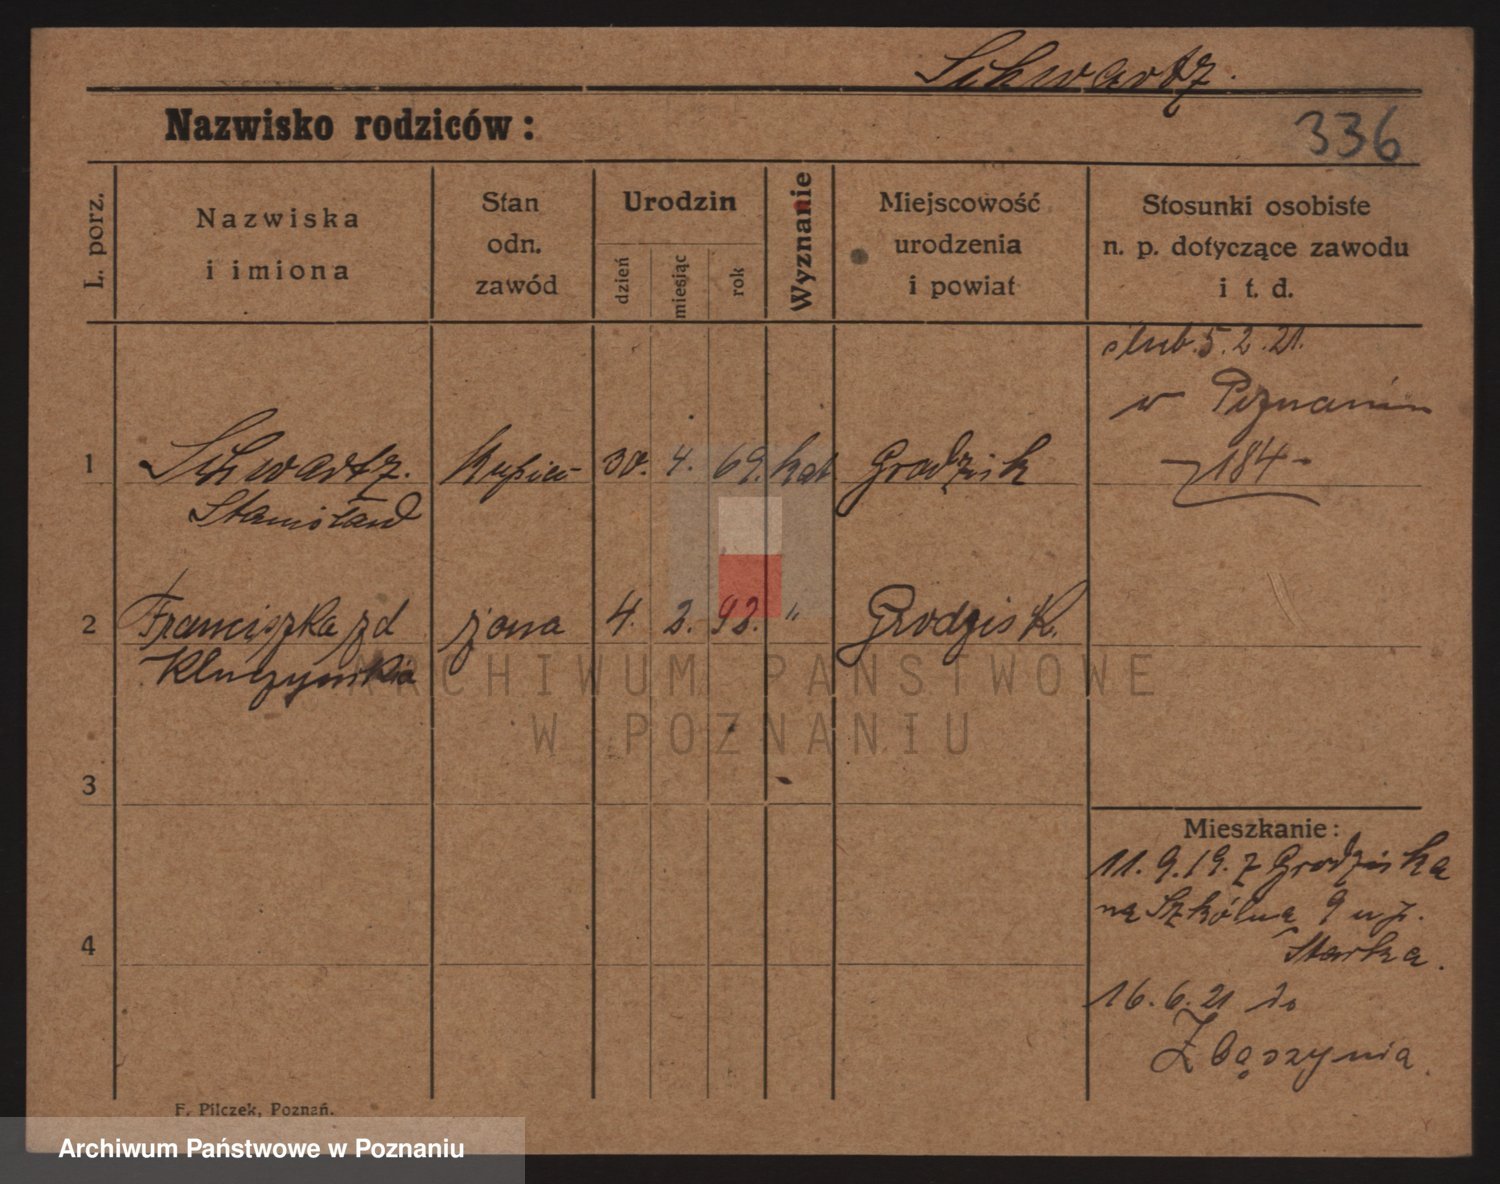 Schwartz.
Nazwisko rodziców:
336
L. porz.
Nazwiska
i imiona
Stan
odn.
zawód
Urodzin
dzień
miesiąc
rok
Wyznanie
Miejscowość
urodzenia
i powiat
Stosunki osobiste
n. p. dotyczące zawodu
i t. d.
ślub. 5. 2. 21.
w Poznaniu
184
1 Schwartz. Kupiec 30. 4. 69. kat Grodzisk
Stanisław
2 Franciszka zd żona 4. 2. 92. " Grodzisk.
3
4
Mieszkanie:
11. 9. 19. z Grodziska
na Szkólną 9 u p.
Starka.
16. 6. 21 do
Zbąszynia.
F. Pilczek, Poznań.
ARCHIWUM PAŃSTWOWE
W POZNANIU
Archiwum Państwowe w Poznaniu